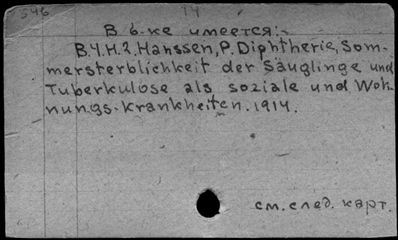 546 14
В б-ке имеется:-
B.4.H.2. Hanssen, P. Diphtherie, Som-
mersterblichkeit der Säuglinge und
Tuberkulose als soziale und Woh-
nungs-krankheiten. 1914.
см. след. карт.